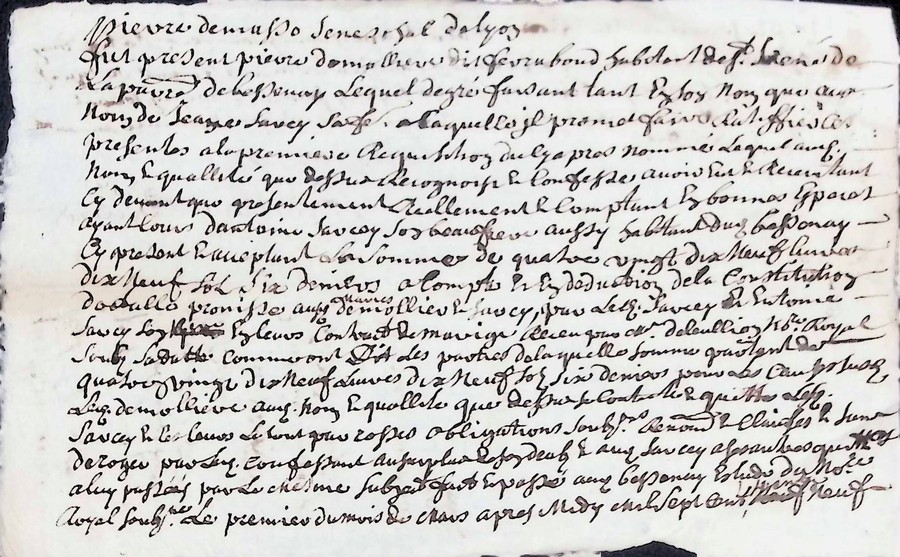 pierre demasso seneschal de lyon
fut present pierre demolliere dit ferrabond habitant de st. Irené de
La parre de bessenay Lequel degré faisant tant En son Nom que aux
Nom de Jeane Sarcey sa fe. a laquelle il promet faire Ratiffier Ces
presentes a la premiere Requisition du Cy apres nommé Lequel aus.
Nom & quallité que dessus Recognoist & Confesse avoir Eu & Receu tant
Cy devant que presentement Reallement & Comptant En bonnes Especes
ayant Cours d'antoine Sarcey son beaufrere aussy habitant dud. bessenay
Cy present & acceptant La Somme de quatre vingt dix Neuf livres
dix Neuf sol six deniers a Compte & En deduction de la Constitution
dotalle promise aus. mariés demolliere & Sarcey, par Led. Sarcey & Estienne
Sarcey son En leurs Contrat de mariage Receu par me. deleullion Nore. Royal
Soub sa datte comme ont dit Les parties de laquelle somme partant de
quatre vingt dix Neuf Livres dix Neuf sol six deniers pour Les Causes susd.
Led. demolliere aus. Nom & quallité que dessus se Contente & quitte Led.
Sarcey & Les Siens Le tout par Obligations soubs. Renond & Clauses &
par Led. Confessant au surplus & aud. Sarcey
a luy passées par Le mesme fait & passé aud. bessenay Estude du Nore.
Royal soubne. Le premier du mois de Mars apres Midy Mil Sept Cent Neuf